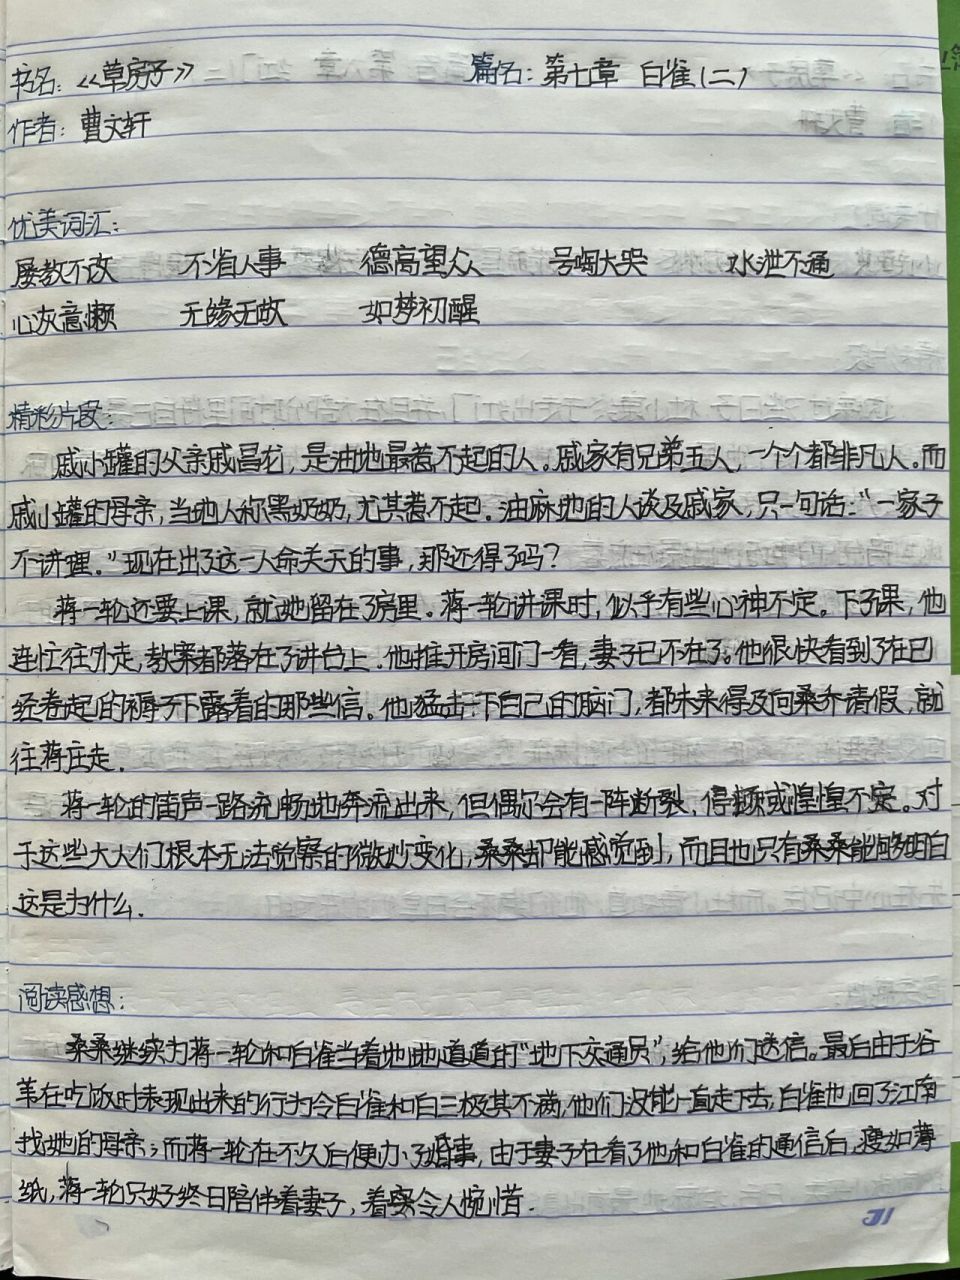 书名：《草房子》 篇名：第七章 白雀(二)
作者：曹文轩
优美词汇：
屡教不改 不省人事 德高望众 号啕大哭 水泄不通
心灰意懒 无缘无故 如梦初醒
精彩片段：
戚小罐的父亲戚昌龙，是油地最惹不起的人。戚家有兄弟五人，一个个都非凡人。而
戚小罐的母亲，当地人称黑奶奶，尤其惹不起。油麻地的人谈及戚家，只一句话：“一家子
不讲理。”现在出了这一人命关天的事，那还得了吗？
蒋一轮还要上课，就她留在了房里。蒋一轮讲课时，似乎有些心神不定。下了课，他
连忙往外走，教案都落在了讲台上。他推开房间门一看，妻子已不在了。他很快看到了在已
经卷起的褥子下露着的那些信。他猛击一下自己的脑门，都未来得及向桑乔请假，就
往蒋庄走。
蒋一轮的笛声一路流畅地奔流出来，但偶尔会有一阵断裂、停顿或惶惶不定。对
于这些大人们根本无法觉察的微妙变化，桑桑却能感觉到，而且也只有桑桑能够明白
这是为什么。
阅读感想：
桑桑继续为蒋一轮和白雀当着地地道道的“地下交通员”，给他们送信。最后由于谷
苇在吃饭时表现出来的行为令白雀和白三极其不满，他们没能一直走下去，白雀也回了江南
找她的母亲；而蒋一轮在不久后便办了婚事，由于妻子在看了他和白雀的通信后，瘦如薄
纸，蒋一轮只好终日陪伴着妻子，着实令人惋惜。